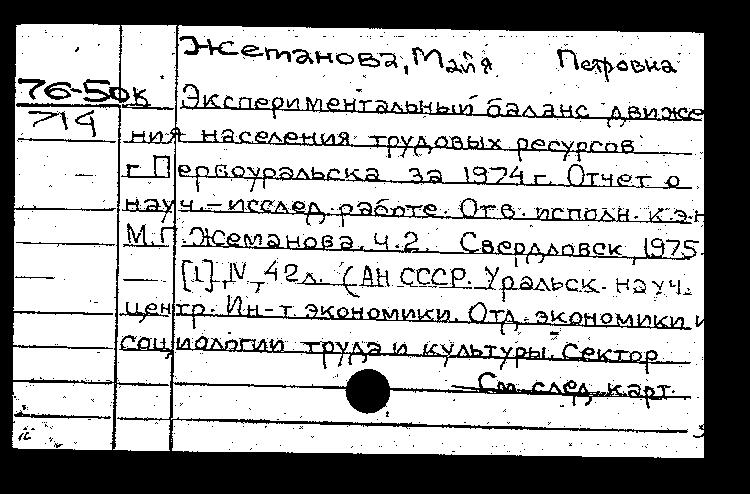 Жетанова, Майя Петровна
76-50к Экспериментальный баланс движе
714 ния населения трудовых ресурсов
г Первоуральска за 1974 г. Отчет о
науч.-исслед. работе. Отв. исполн. к.э.н
М.П. Жеманова. Ч.2. Свердловск, 1975.
[1], IV, 42 л. (АН СССР. Уральск. науч.
центр. Ин-т экономики. Отд. экономики и
социологии труда и культуры. Сектор
См. след. карт.